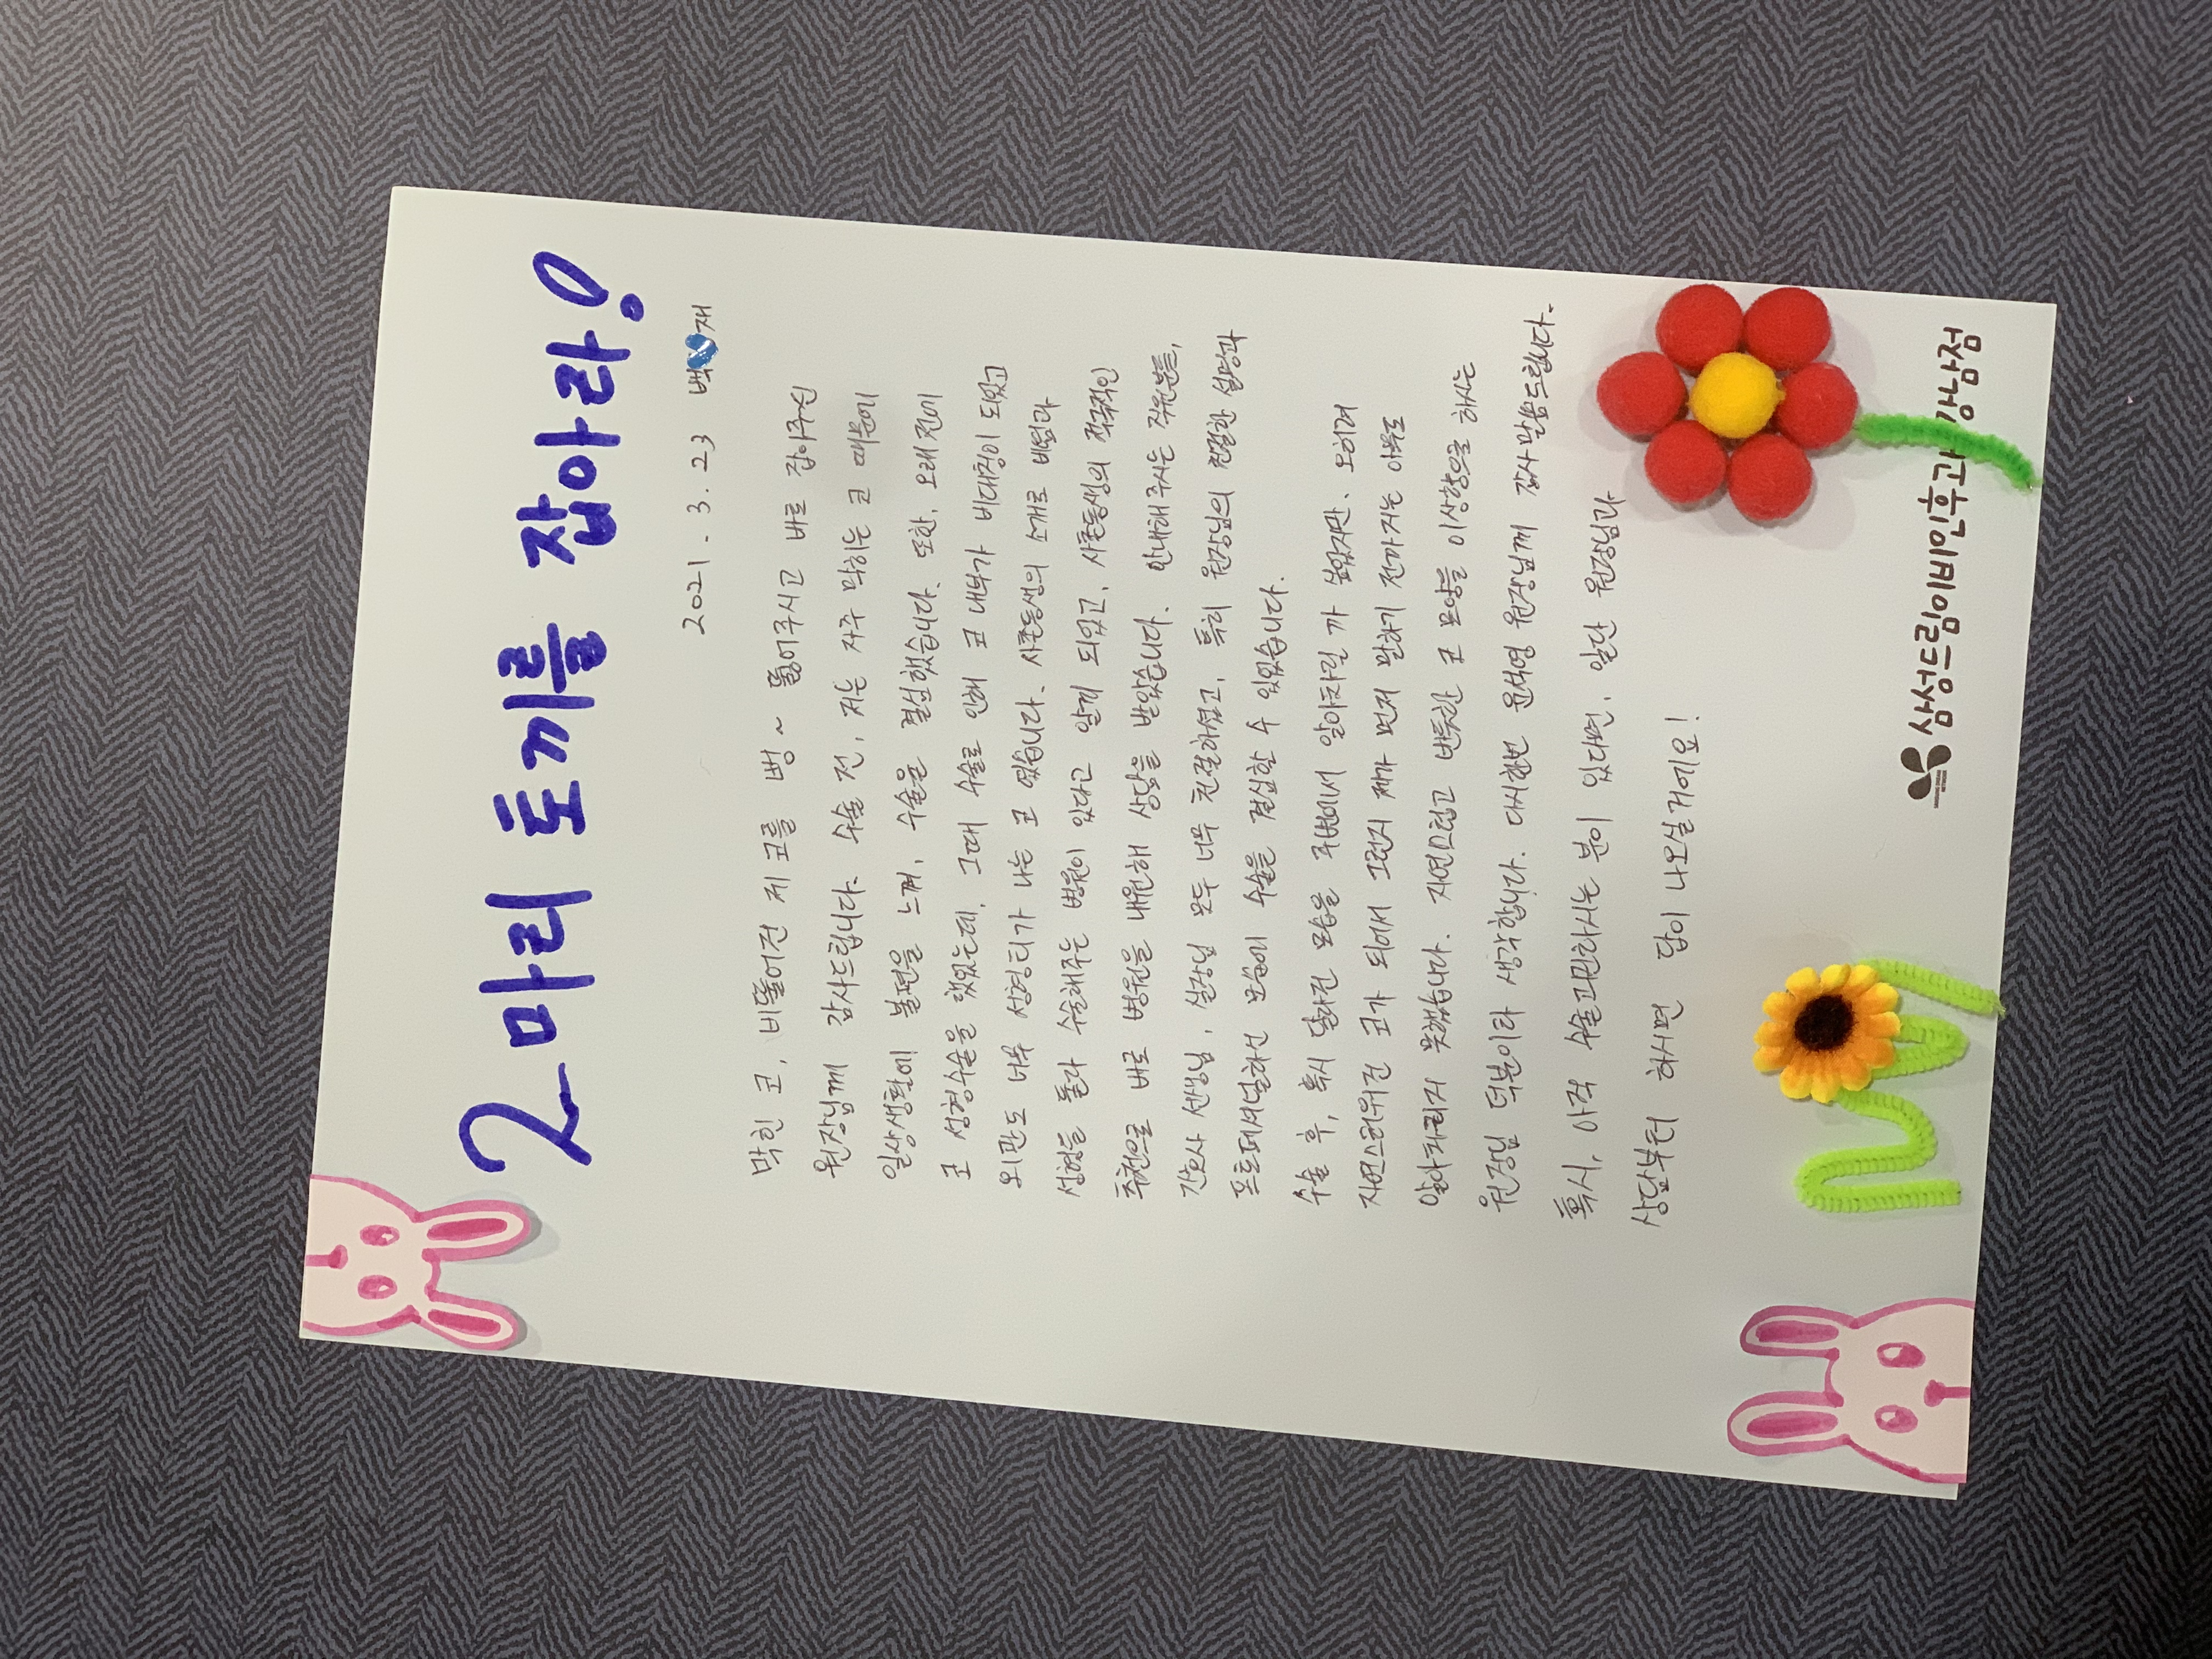 2마리 토끼를 잡아라!
2021. 3. 23 백 재
막힌 코, 비뚤어진 제 코를 뻥~ 뚫어주시고 바로 잡아주신
원장님께 감사드립니다. 수술 전, 저는 자주 막히는 코 때문에
일상생활에 불편을 느껴, 수술을 결심했습니다. 또한, 오래전에
코 성형수술을 했었는데, 그때 수술로 인해 코 내부가 비대칭이 되었고
외관도 너무 성형티가 나는 코 였습니다. 사촌동생의 소개로 비염과
성형을 둘다 수술해주는 병원이 있다고 알게 되었고, 사촌동생의 적극적인
추천으로 바로 병원을 내원해 상담을 받았습니다. 안내해주시는 직원분들,
간호사 선생님, 실장님 모두 너무 친절하셨고, 특히 원장님의 친절한 설명과
프로페셔널하신 모습에 수술을 결심할 수 있었습니다.
수술 후, 혹시 달라진 모습을 주변에서 알아차릴 까 싶었지만, 오히려
자연스러워진 코가 되어서 그런지 제가 먼저 말하기 전까지는 아무도
알아차리지 못했습니다. 자연스럽고 반듯한 코 모양을 이상향으로 하시는
원장님 덕분이라 생각합니다. 다시한번 윤석영 원장님께 감사말씀드립니다.
혹시, 아직 수술고민하시는 분이 있다면, 일단 원장님과
상담부터 하시면 답이 나오실거에요!
삼성드림이비인후과 강남점